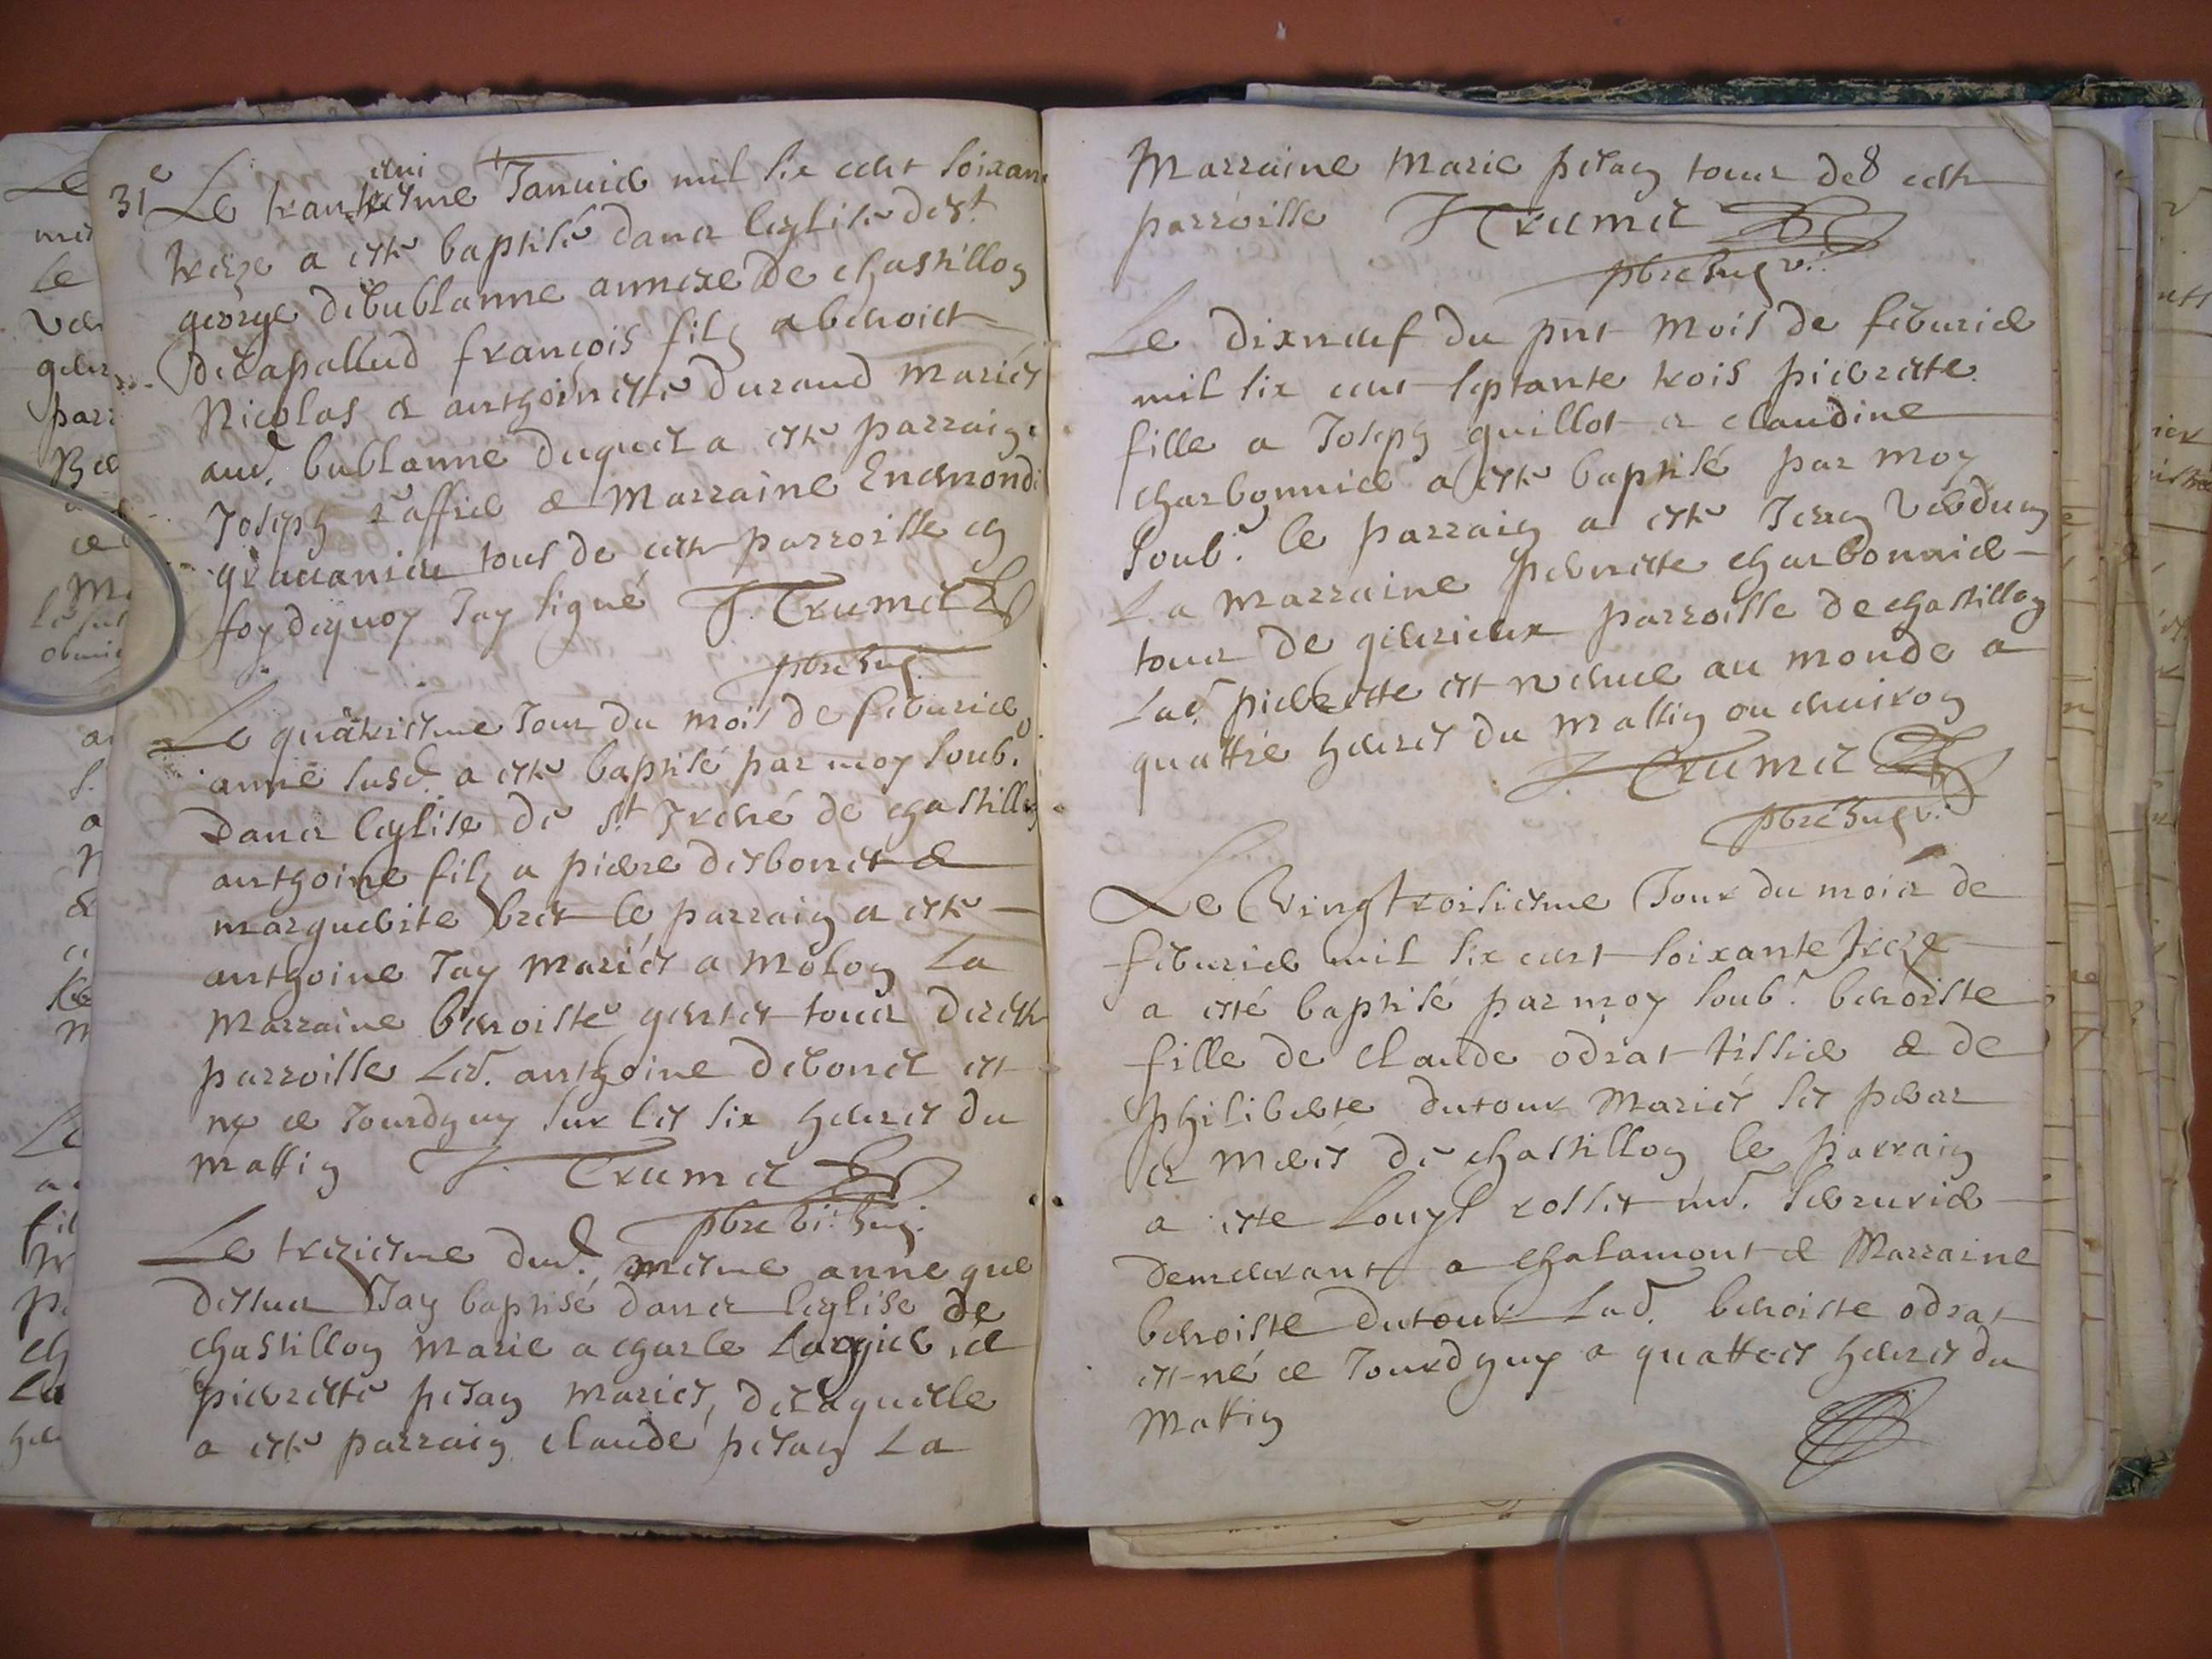 31e Le tranteuniesme Januier mil six cent soixante
treize a este baptisé dans leglise de st
george debublanne annexe de chastillon
delapallud françois filz a benoict
Nicolas & anthoinette durand mariés
aud. bublanne duquel a este parrain
Joseph raffier & Marraine Enemonde
tous de ceste parroisse en
foy dequoy Jay signé J. Trumet
pbre
Le quatriesme Jour du mois de feburier
anné susd. a este baptisé par moy soub.
dans leglise de st Irené de chastillon
anthoine filz a pierre desbonet &
marguerite bret le parrain a este
anthoine Jay mariés a molon La
Marraine benoiste gentet tous de ceste
parroisse Led. anthoine debonet est
né ce Jourdhuy sur les six heures du
mattin J. Trumet
pbre vi:
Le treziesme dud. mesme anné que
dessus Jay baptisé dans leglise de
chastillon Marie a charle Largier &
pierrette pitan mariés, delaquelle
a este parrain claude pitan La
Marraine Marie pitan tous de ceste
parroisse J Trumet
pbre
Le dixneuf du pnt Mois de feburier
mil six cent septante trois pierrette
fille a Joseph guillot & claudine
charbonnier a este baptisé par moy
soub. le parrain a este Jean Verdun
La Marraine pernette charbonnier
tous de gieurieux parroisse de chastillon
Lad. pierrette est venue au monde a
quattre heures du mattin ou enuiron
J. Trumet
pbre
Le vingttroisiesme Jour du mois de
feburier mil six cent soixante treze
a esté baptisé par moy soub. benoiste
fille de claude odrat tissier & de
philiberte dutour Mariés ses peres
& meres de chastillon le parrain
a este Louys rosset md. serrurier
demeurant a chalamont & Marraine
benoiste dutour Lad. benoiste odrat
est né ce Jourdhuy a quattres heures du
Mattin